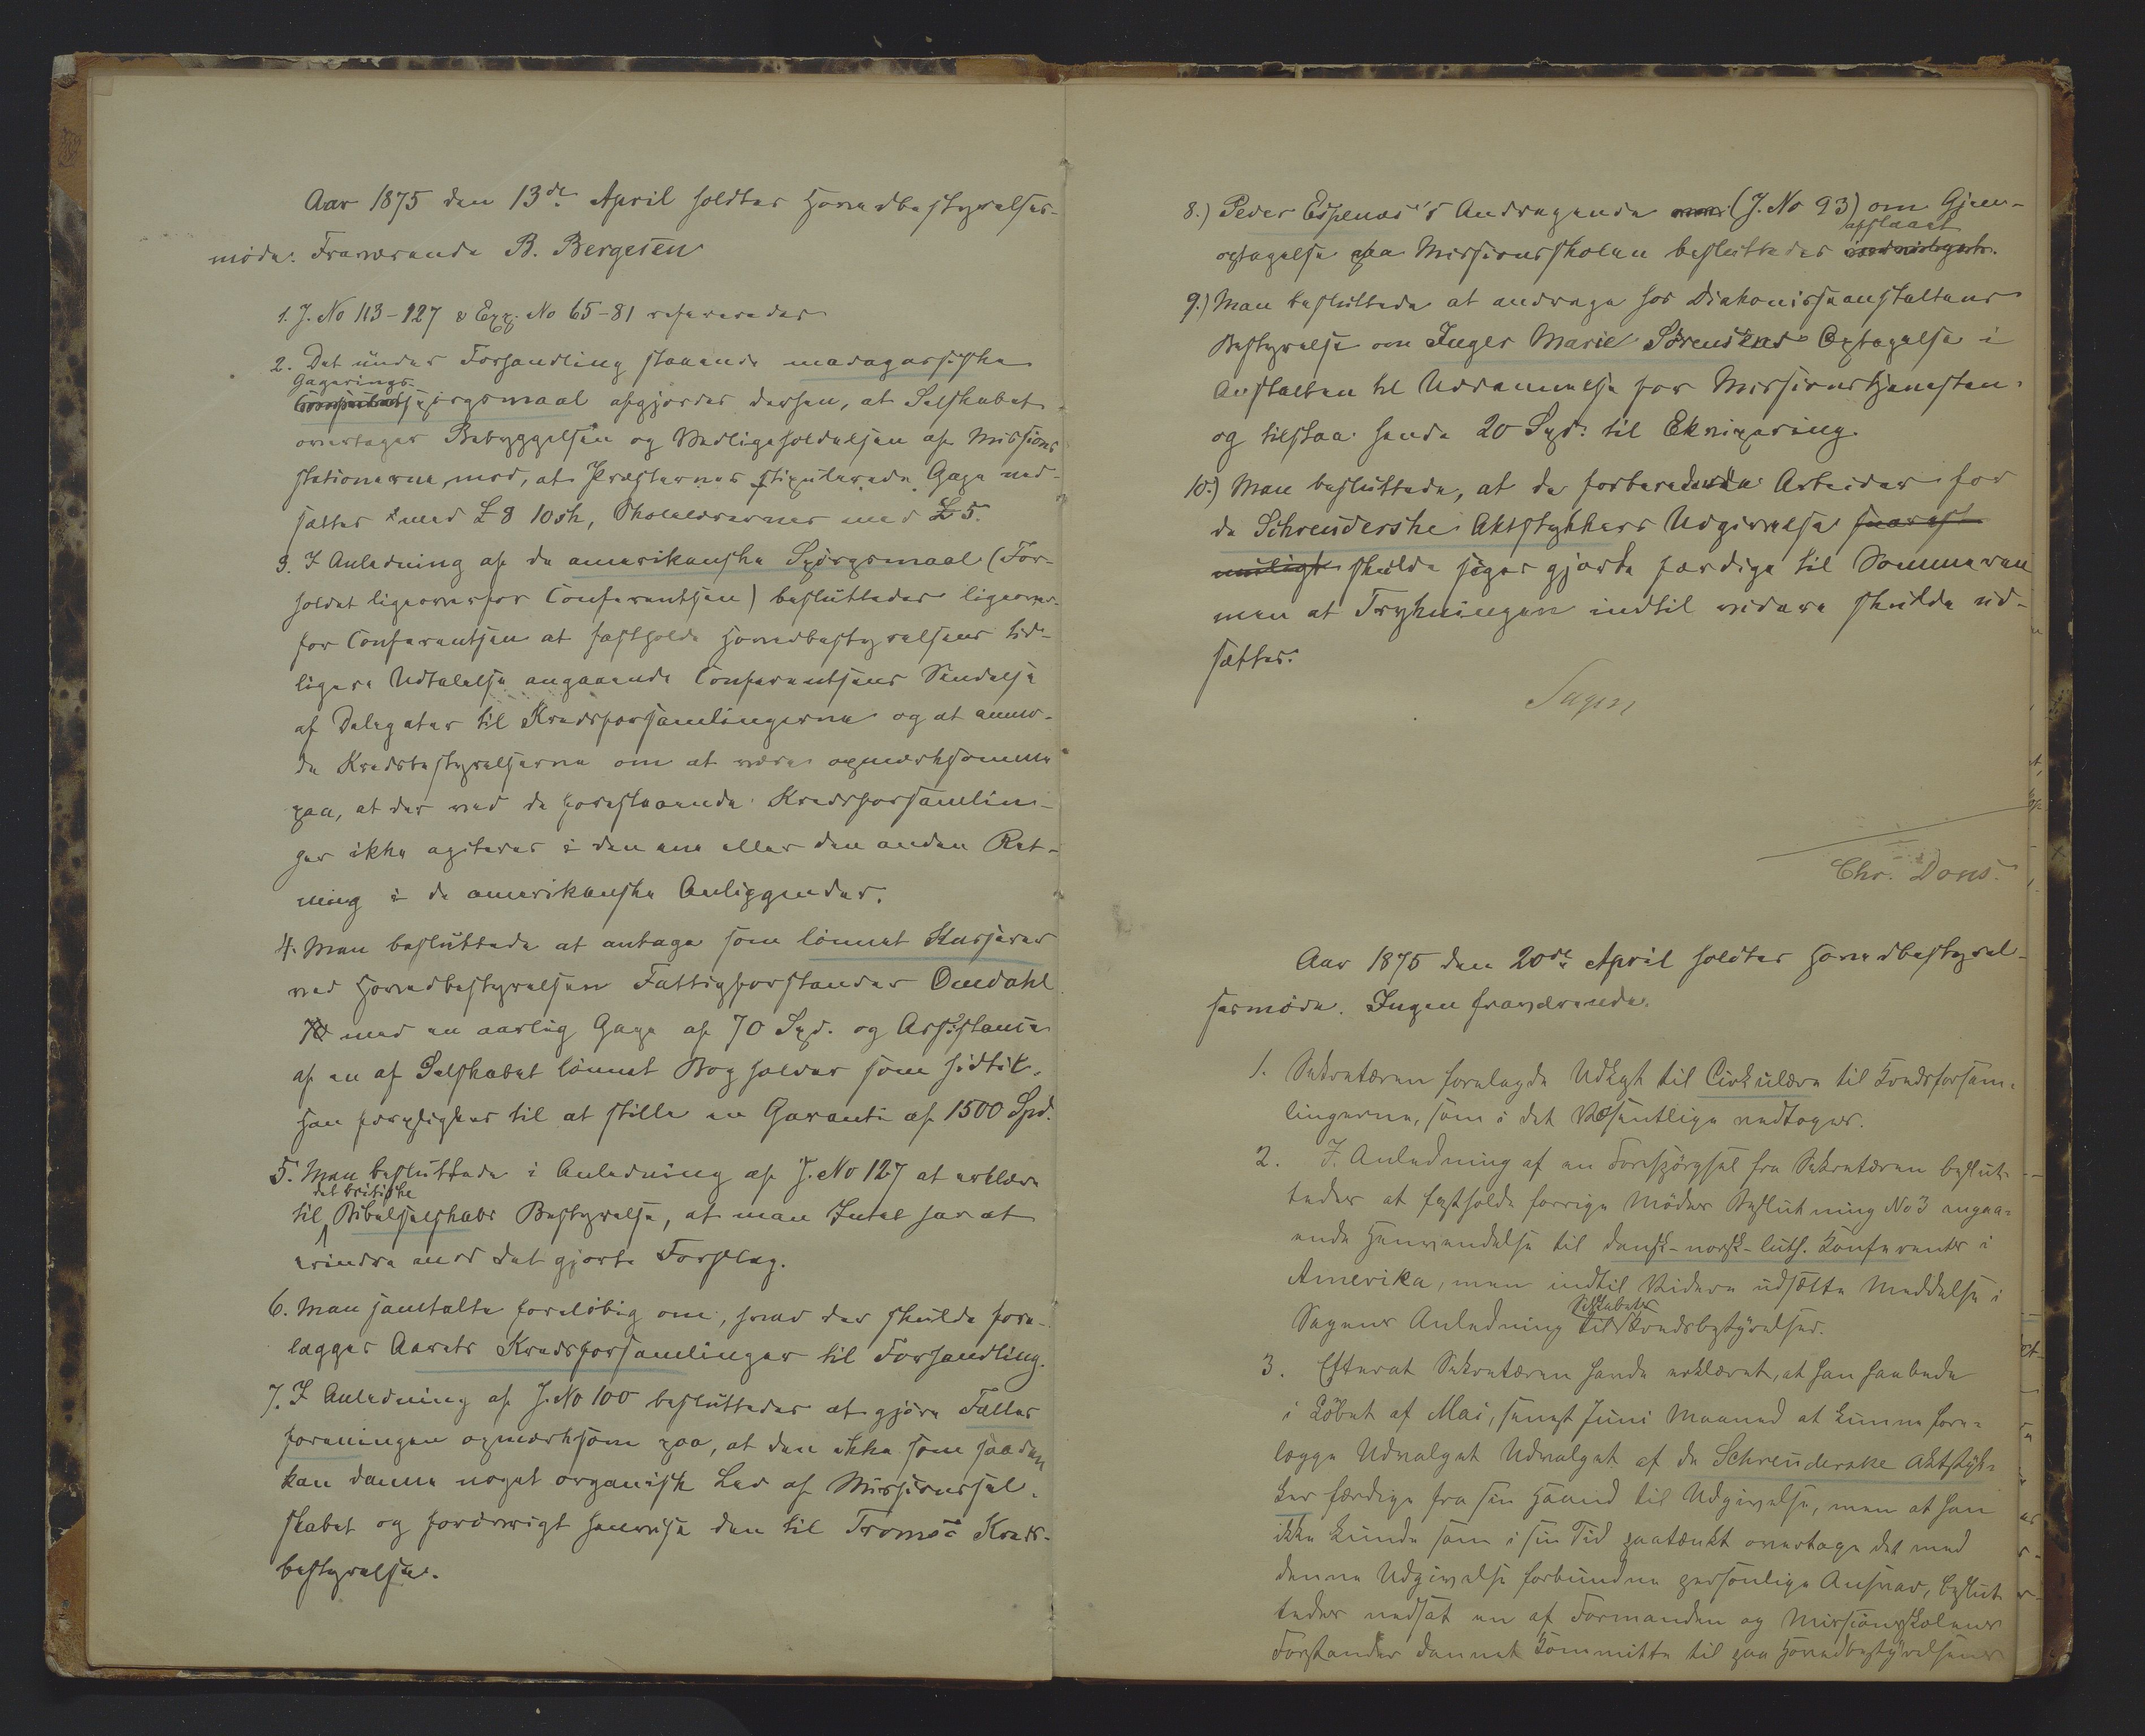 Aar 1875 den 13de April holdtes Hovedbestyrelses-
møde. Fraværende B. Bergesen
1. J. No 113-127 & Exp. No 65-81 refereredes
2. Det under Forhandling staaende madagassiske
Gagerings-
spørgsmaal afgjordes derhen, at Selskabet
overtager Bebyggelsen og Vedligeholdelsen af Missions
stationerne, mod, at Præsternes stipulerede Gage ned-
sættes med £ 8 10sh, Skolelærernes med £ 5.
3. I Anledning af de amerikanske Spørgsmaal (For-
holdet ligeoverfor Conferentsen) besluttedes ligeover-
for Conferentsen at fastholde Hovedbestyrelsens tid-
ligere Udtalelse angaaende Conferentsens Sendelse
af Delegater til Kredsforsamlingerne og at anmo-
de Kredsbestyrelserne om at være opmærksomme
paa, at der ved de forestaaende Kredsforsamlin-
ger ikke agiteres i den ene eller den anden Ret-
ning i de amerikanske Anliggender.
4. Man besluttede at antage som lønnet Kasserer
ved Hovedbestyrelsen Fattigforstander Omdahl
med en aarlig Gage af 70 Spd. og Assistance
af en af Selskabet lønnet Bogholder som hidtil.
Han forpligtes til at stille en Garanti af 1500 Spd.
5. Man besluttede i Anledning af J. No 127 at erklære
det britiske
til Bibelselskabs Bestyrelse, at man Intet har at
erindre mod det gjorte Forslag.
6. Man samtalte foreløbig om, hvad der skulde fore-
lægges Aarets Kredsforsamlinger til Forhandling.
7. I Anledning af J. No 100 besluttedes at gjøre Fælles
foreningen opmærksom paa, at den ikke som saadan
kan danne noget organisk Led af Missionssel-
skabet og forøvrigt henvise den til Tromsø Kreds-
bestyrelse.
8.) Peder Espenæs's Andragende (J. No 93) om Gjen-
afslaaet
optagelse paa Missionsskolen besluttedes
9.) Man besluttede at andrage hos Diakonisseanstaltens
Bestyrelse om Inger Marie Sørensens Optagelse i
Anstalten til Uddannelse for Missionstjenesten
og tilstaa hende 20 Spd. til Ekvipering.
10.) Man besluttede, at de forberedende Arbeider for
de Schreuderske Aktstykkers Udgivelse snarest
muligt skulde søges gjorte færdige til Sommeren
men at Trykningen indtil videre skulde ud-
sættes.
Sagen
Chr. Dons.
Aar 1875 den 20de April holdtes Hovedbestyrel-
sesmøde. Ingen fraværende.
1. Sekretæren forelagde Udkast til Cirkulære til Kredsforsam-
lingerne, som i det Væsentlige vedtoges.
2. I Anledning af en Forespørgsel fra Sekretæren beslut-
tedes at fastholde forrige Mødes Beslutning No 3 angaa-
ende Henvendelse til dansk-norsk-luth. Konferents i
Amerika, men indtil Videre udsætte Meddelse i
Selskabets
Sagens Anledning til Kredsbestyrelser.
3. Efterat Sekretæren havde erklæret, at han haabede
i Løbet af Mai, senest Juni Maaned at kunne fore-
lægge Udvalget Udvalget af de Schreuderske Aktstyk-
ker færdige fra sin Haand til Udgivelse, men at han
ikke kunde som i sin Tid paatænkt overtage det med
denne Udgivelse forbundne personlige Ansvar, beslut
tedes nedsat en af Formanden og Missionsskolens
Forstander dannet Kommitte til paa Hovedbestyrelsens